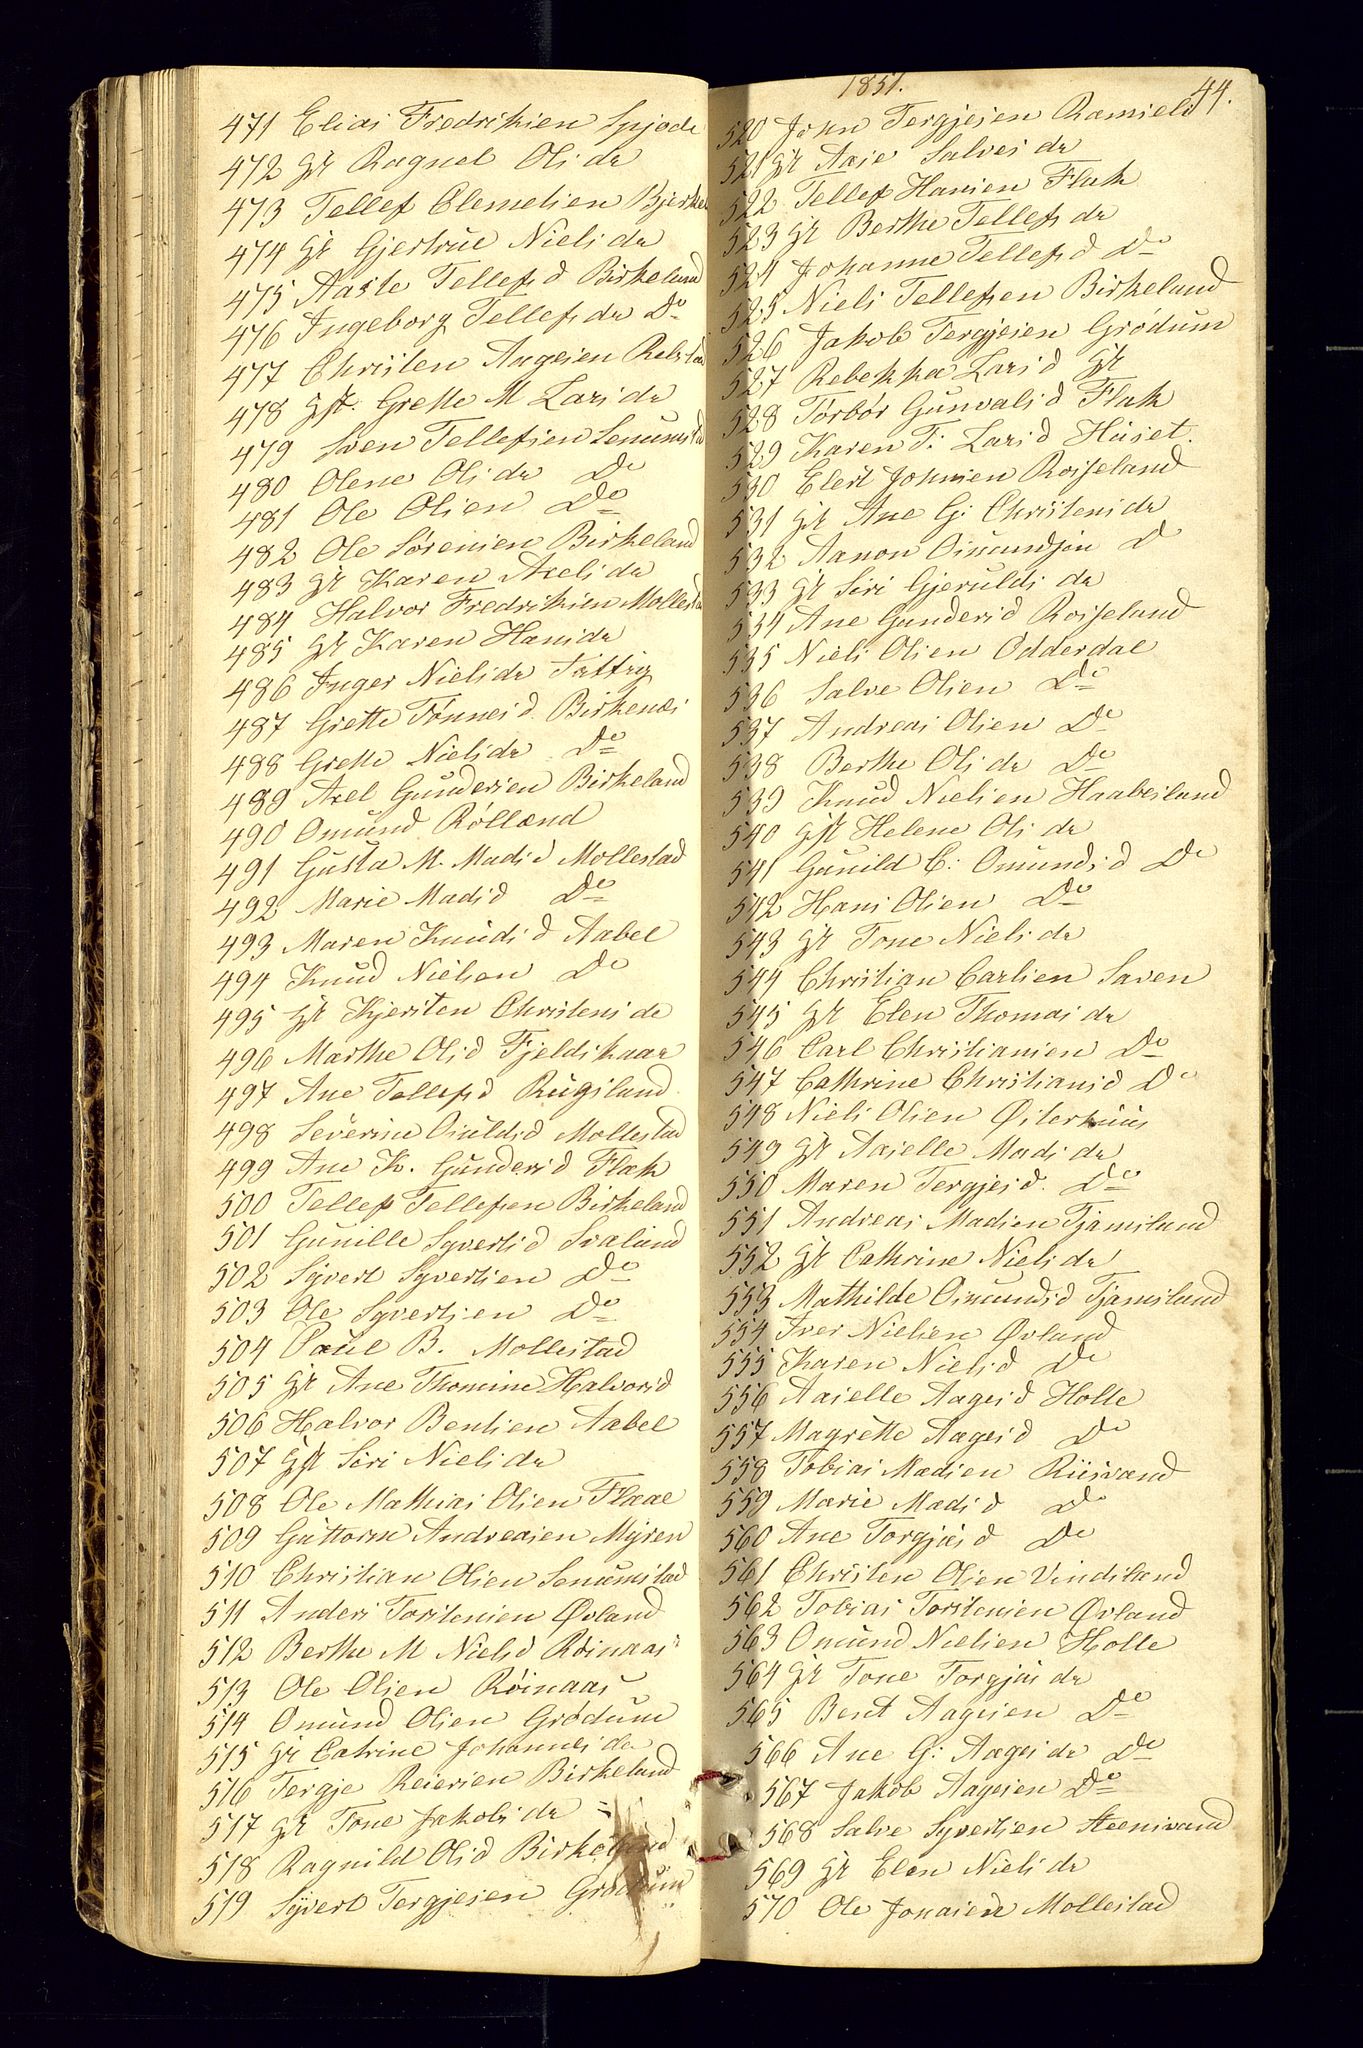 471 Elias Fredriksen Spjode
472 Gt Ragnel Ols dr
473 Tellef Clemetsen Bjerke
474 Gt Gjertrue Niels dr
475 Aaste Tellefsd Birkeland
476 Ingeborg Tellefs dr Do
477 Christen Aagesen Relstad
478 Gft. Grette M Lars dr
479 Sven Tellefsen Senumstad
480 Olene Ols dr Do
481 Ole Olsen Do
482 Ole Sørensen Birkeland
483 Gt Karen Axels dr
484 Halvor Fredriksen Mollestad
485 Gt Karen Hansdr
486 Inger Nielsdr
487 Grette Tønnesd. Birkenæs
488 Grette Nielsdr Do
489 Axel Gundersen Birkeland
490 Omund Rølland
491 Gusta M. Madsd Mollestad
492 Marie Madsd Do
493 Maren Knudsd Aabel
494 Knud Nielsen Do
495 Gt Kjersten Christens dr
496 Marthe Olsd Fjeldskaar
497 Ane Tellefsd Rugsland
498 Severine Osuldsd Mollestad
499 Ane K. Gundersd Flak
500 Tellef Tellefsen Birkeland
501 Gunille Syvertsd Svaland
502 Syvert Syvertsen Do
503 Ole Syvertsen Do
504 Paul B. Mollestad
505 Gt Ane Thomine Halvorsd
506 Halvor Bentsen Aabel
507 Gft Siri Niels dr
508 Ole Mathias Olsen Flaae
509 Guttorm Andreasen Myren
510 Christian Olsen Senumstad
511 Anders Torstensen Øvland
512 Berthe M Nielsd Røinaas
513 Ole Olsen Røinaas
514 Omund Olsen Grødum
515 Gt Catrine Johannes dr
516 Tergje Reiersen Birkeland
517 Gt Tone Jakobs dr =
518 Ragnild Olsd Birkeland
519 Syvert Tergjesen Grødum
1851.
44.
520 John Tergjesen Ramsels
521 Gt Aase Salves dr
522 Tellef Hansen Flak
523 Gt Berthe Tellefs dr
524 Johanne Tellefsd Do
525 Niels Tellefsen Birkeland
526 Jakob Tergjesen Grødum
527 Rebekka Larsd Gt
528 Torbor Gunvalsd Flak
529 Karen T: Larsd Huset.
530 Elert Johnsen Roiseland
531 Gt Ane G: Christens dr
532 Aanon Osmundsen D
533 Gt Siri Gjerulds dr
534 Ane Gundersd Roiseland
535 Niels Olsen Odderdal
536 Salve Olsen Do
537 Andreas Olsen Do
538 Berthe Ols dr Do
539 Knud Nielsen Haabesland
540 Gft Helene Ols dr
541 Gunild C: Omundsd Do
542 Hans Olsen Do
543 Gt Tone Niels dr
544 Christian Carlsen Saven
545 Gt Elen Thomas dr
546 Carl Christiansen Do
547 Cathrine Christiansd Do
548 Niels Olsen Østerhuus
549 Gt Aaselle Mads dr
550 Maren Tergjesd. Do
551 Andreas Madsen Tjamsland
552 Gt Cathrine Niels dr
553 Mathilde Osmundsd Tjamsland
554 Iver Nielsen Øvland
555 Karen Nielsd Do
556 Aaselle Aagesd Holle
557 Magrette Aagesd Do
558 Tobias Madsen Riisvand
559 Marie Madsd Do
560 Ane Torgjusd Do
561 Christen Olsen Vindsland
562 Tobias Torstensen Øvland
563 Omund Nielsen Holle
564 Gt Tone Torgjus dr
565 Bent Aagesen Do
566 Ane G: Aages dr Do
567 Jakob Aagesen Do
568 Salve Syvertsen Steensvand
569 Gt Elen Niels dr
570 Ole Jonasen Mollestad